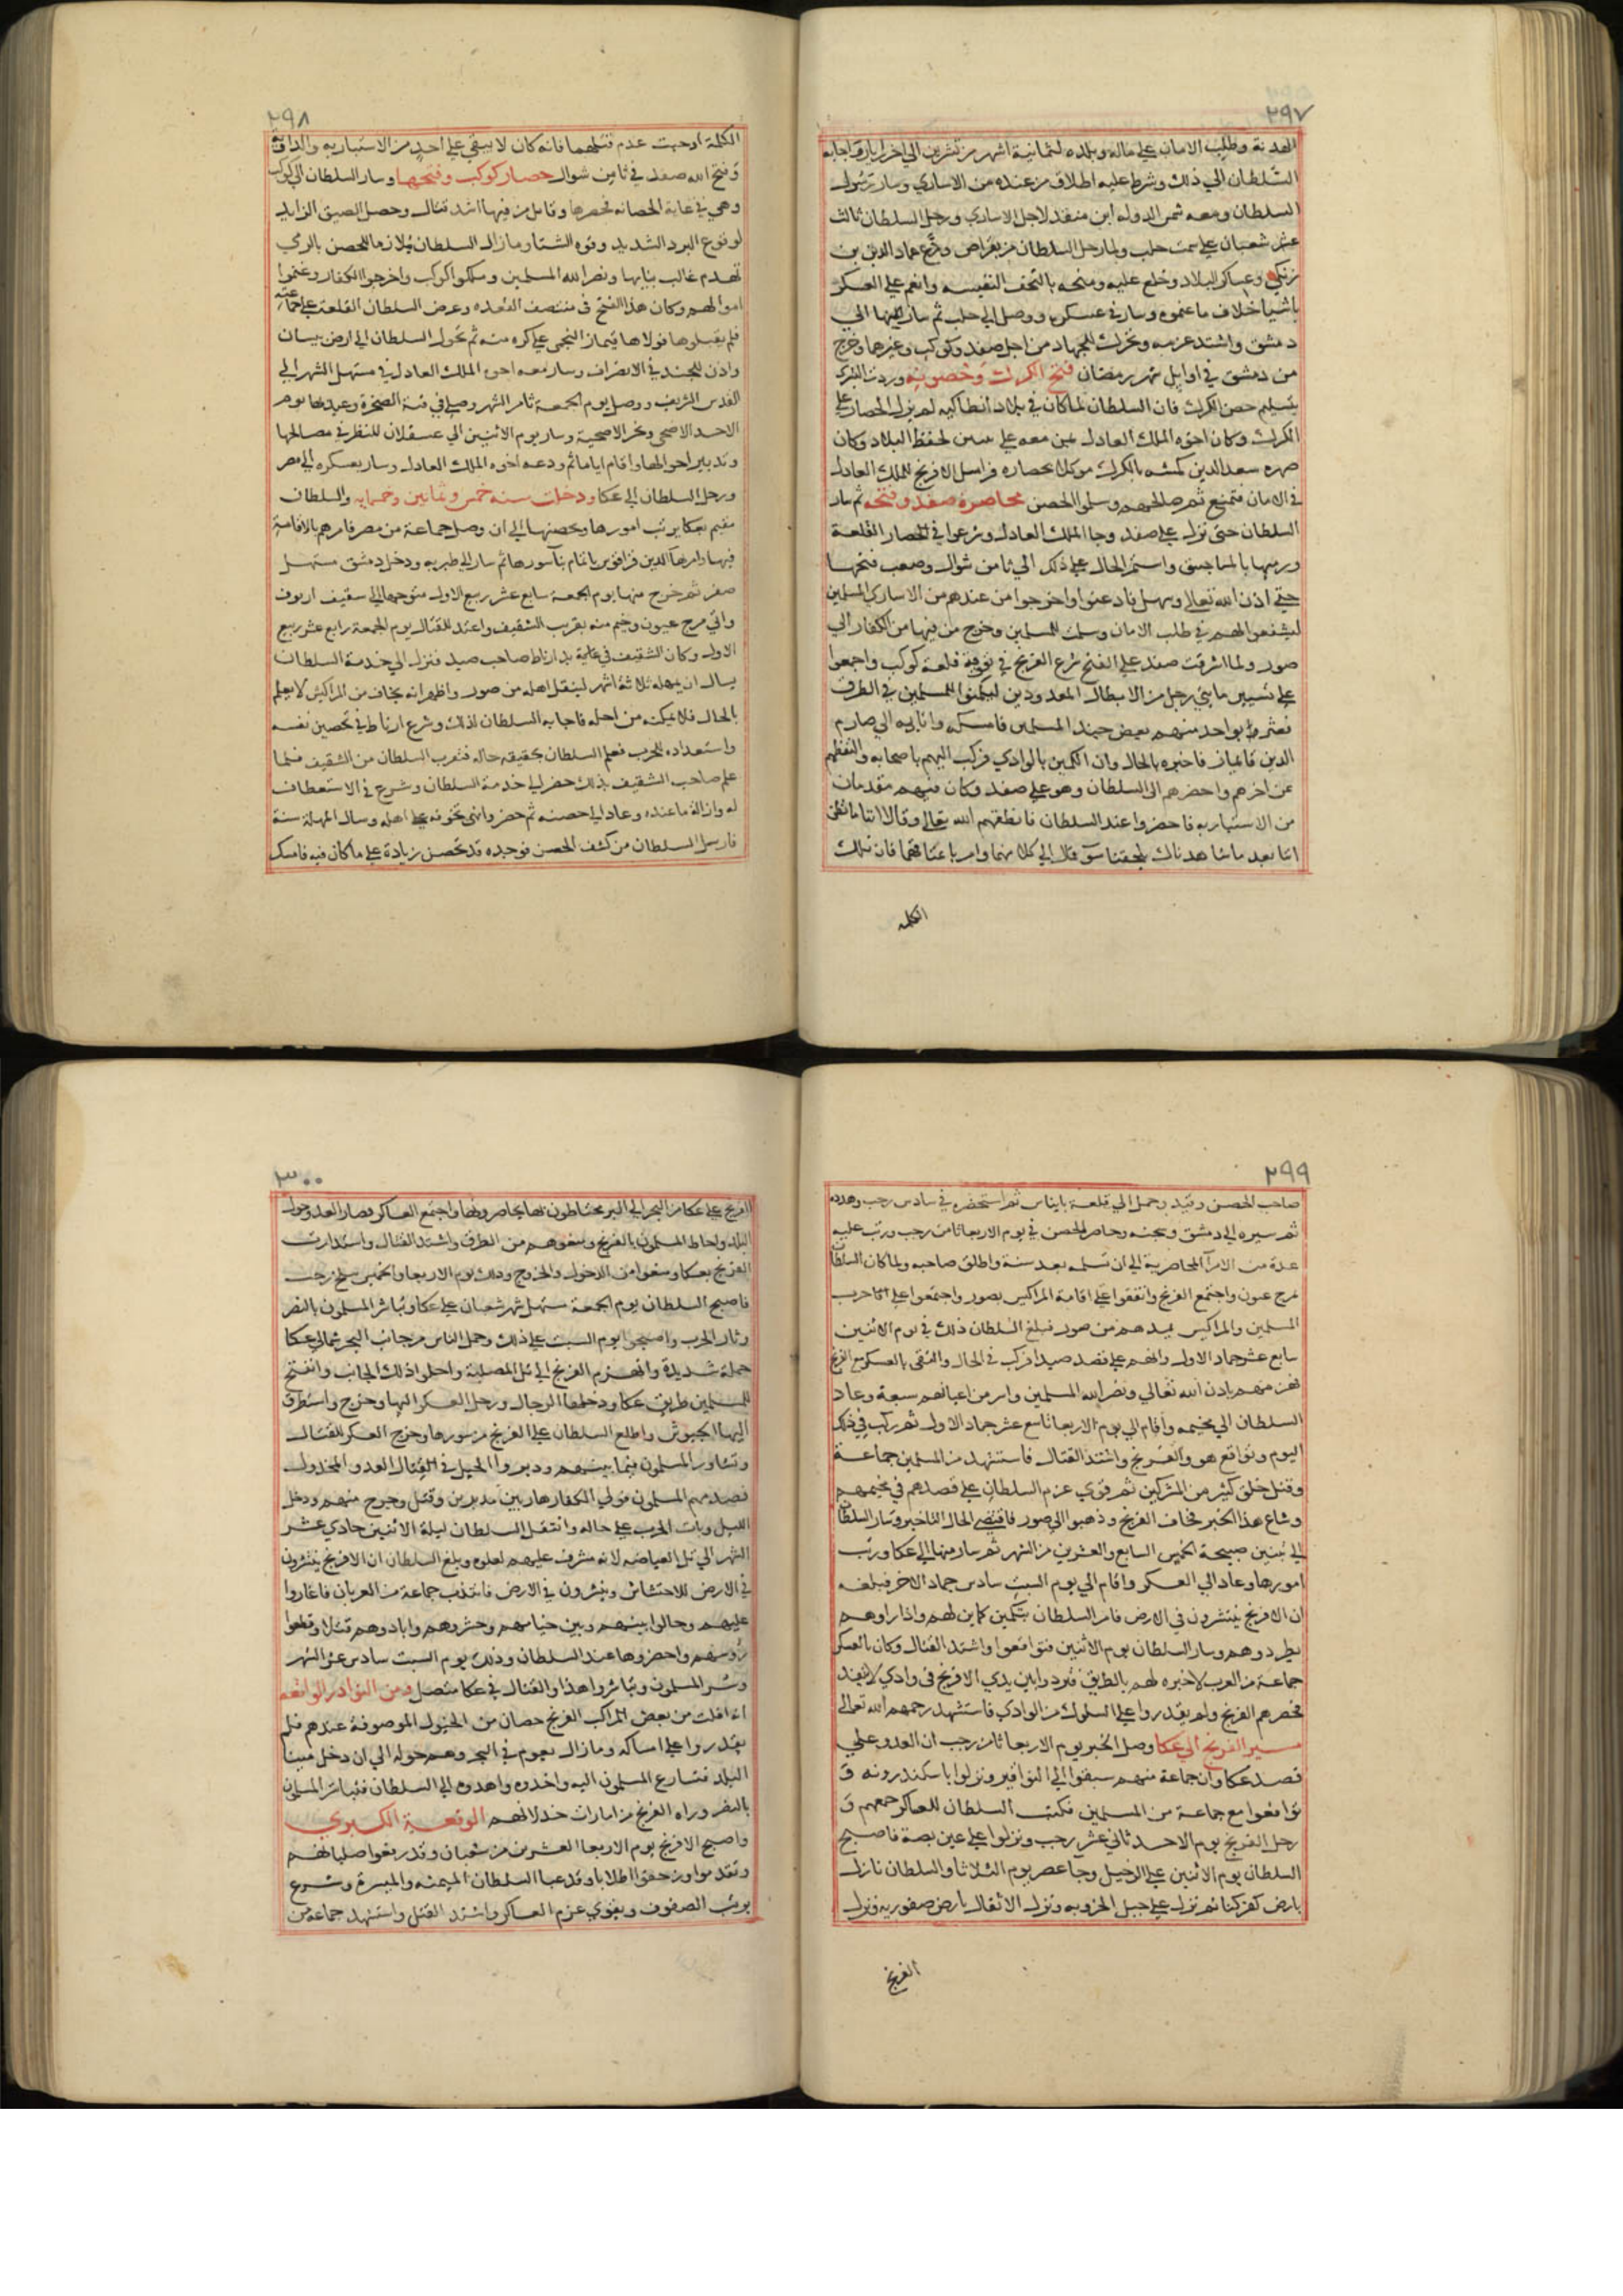 ٢٩٧
الهدنة وطلب الامان علي ماله وبلده لثمانية اشهر من تشرين الي اخر ايار واجابه
السلطان الي ذلك وشرط عليه اطلاق من عنده من الاساري وسار رسول
السلطان ومعه شمس الدوله ابن منقذ لاجل الاساري ورحل السلطان ثالث
عشر شعبان علي سمت حلب ولما رحل السلطان من بغراس ودع عماد الدين بن
زنكي وعساكر البلاد وخلع عليه ومنحه بالتحف النفيسه وانعم علي العسكر
باشيا خلاف ما غنموه وسار في عسكره ووصل الي حلب ثم سار منها الي
دمشق واشتد عزمه وتحرك للجهاد من اجل صفد وكوكب وغيرها وخرج
من دمشق في اوايل شهر رمضان فتح الكرك وحصونه وردت البشري
بتسليم حصن الكرك فان السلطان لما كان في بلاد انطاكيه لم يزل الحصار علي
الكرك وكان اخوه الملك العادل بمن معه علي تبنين لحفظ البلاد وكان
صهره سعد الدين كمشبه بالكرك موكلا بحصاره فراسل الافرنج للملك العادل
في الامان فتمنع ثم صالحهم وسلموا الحصن محاصرة صفد وفتحه ثم سار
السلطان حتى نزل علي صفد وجا الملك العادل وشرعوا في الحصار القلعة
ورميها بالمناجيق واستمر الحال علي ذلك الي ثامن شوال وصعب فتحها
حتي اذن الله تعالي وسهل فاذعنوا واخرجوا من عندهم من الاساري المسلمين
ليشفعوا لهم في طلب الامان وسلمت للمسلمين وخرج من فيها من الكفار الي
صور ولما اشرفت صفد علي الفتح شرع الفرنج في تقوية قلعة كوكب واجمعوا
علي تسيير مايتي رجل من الابطال المعدودين ليكمنوا للمسلمين في الطرق
فعثر بواحد منهم بعض جند المسلمين فامسكه واتا به الي صارم
الدين قايماز فاخبره بالحال وان الكمين بالوادي فركب اليهم باصحابه والتقطهم
عن اخرهم واحضرهم الي السلطان وهو علي صفد وكان فيهم مقدمان
من الاستباريه فاحضروا عند السلطان فانطقهم الله تعالي وقالا اننا ما نظن
اننا بعد ما شاهدناك يلحقنا سو فمال الي كلامهما وامر باعتقالهما فان تلك
الكلمه
٢٩٨
الكلمة اوجبت عدم قتلهما فانه كان لا يبقي علي احد من الاستباريه والداويه
وفتح الله صفد في ثامن شوال حصار كوكب وفتحها وسار السلطان الي كوكب
وهي في غاية الحصانه فحصرها وقاتل من فيها اشد قتال وحصل الضيق الزايد
لوقوع البرد الشديد وقوه الشتا وما زال السلطان ملازما للحصن بالرمي
تهدم غالب بنايها ونصر الله المسلمين وملكوا كوكب واخرجوا الكفار وغنموا
اموالهم وكان هذا الفتح في منتصف القعده وعرض السلطان القلعة علي جماعته
فلم يقبلوها فولاها قيماز النجمي علي كره منه ثم تحول السلطان الي ارض بيسان
واذن للجند في الانصراف وسار معه اخوه الملك العادل في مستهل الشهر الي
القدس الشريف ووصل يوم الجمعة ثامن الشهر وصلي في قبة الصخرة وعيد بها يوم
الاحد الاضحي ونحر الاضحية وسار يوم الاثنين الي عسقلان للنظر في مصالحها
وتدبير احوالها واقام اياما ثم ودعه اخوه الملك العادل وسار بعسكره الي مصر
ورحل السلطان الي عكا ودخلت سنه خمس وثمانين وخمسمايه والسلطان
مقيم بعكا يرتب امورها وتحصنها الي ان وصل جماعة من مصر فامرهم بالاقامة
فيها وامر بهاالدين قراقوس باتمام بنا سورها ثم سار الي طبريه ودخل دمشق مستهل
صفر ثم خرج منها يوم الجمعة سابع عشر ربيع الاول متوجها الي سقيف ارنون
واتي مرج عيون وخيم منه بقرب الشقيف واعتد للقتال يوم الجمعة رابع عشر ربيع
الاول وكان الشقيف في غاية يد ارناط صاحب صيد فنزل الي خدمة السلطان
يسال ان يمهله ثلاثة اشهر لينقل اهله من صور واظهر انه يخاف من المراكيس لا يعلم
بالحال فلا يمكنه من اهله فاجابه السلطان لذلك وشرع ارناط في تحصين نفسه
واستعداده للحرب فعلم السلطان بحقيقه حاله فتقرب السلطان من الشقيف فلما
علم صاحب الشقيف بذلك حضر الي خدمة السلطان وشرع في الاستعطاف
له وازالة ما عنده وعاد الي حصنه ثم حضر وانهي تخوفه علي اهله وسال المهلة سنة
فارسل السلطان من كشف الحصن فوجده قد تحصن زيادة علي ما كان فيه فامسك
٢٩٩
صاحب الحصن وقيد وحمل الي قلعة بانياس ثم استحضره في سادس رجب وهدده
ثم سيره الي دمشق وسجنه وحاصر الحصن في يوم الاربعا ثامن رجب ورتب عليه
عدة من الامرآ لمحاصرية الي ان تسلمه بعد سنة واطلق صاحبه ولما كان السلطان
بمرج عيون واجتمع الفرنج واتفقوا علي اقامة المراكيس بصور واجتمعوا علي حرب
المسلمين والمراكيس يمدهم من صور فبلغ السلطان ذلك في يوم الاثنين
سابع عشر جماد الاول وانهم علي قصد صيدا فركب في الحال والتقي بالعسكر مع الفرنج
فهزمهم باذن الله تعالي ونصر الله المسلمين واسر من اعيانهم سبعة وعاد
السلطان الي مخيمه واقام الي يوم الاربعا تاسع عشر جماد الاول ثم ركب في ذلك
اليوم وتواقع هو والفرنج واشتد القتال فاستشهد من المسلمين جماعة
وقتل خلق كثير من المشركين ثم قوي عزم السلطان علي قصدهم في مخيمهم
وشاع هذا الخبر فخاف الفرنج وذهبوا الي صور فاقتضي الحال التاخير وسار السلطان
الي تبنين صبيحة الخميس السابع والعشرين من الشهر ثم سار منها الي عكا ورتب
امورها وعاد الي العسكر واقام الي يوم السبت سادس جماد الاخر فبلغه
ان الافرنج ينتشرون في الارض فامر السلطان بتكمين كماين لهم واذا راوهم
يطردوهم وسار السلطان يوم الاثنين فتواقعوا واشتد القتال وكان بالعسكر
جماعة من العرب لا خبره لهم بالطريق فتردوا بين يدي الافرنج في وادي لا ينفذ
فحصرهم الفرنج ولم يقدروا علي السلوك من الوادي فاستشهد رحمهم الله تعالي
مسير الفرنج الي عكا وصل الخبر يوم الاربعا ثامن رجب ان العدو علي
قصد عكا وان جماعة منهم سبقوا الي النواقير ونزلوا باسكندرونه و
تواقعوا مع جماعة من المسلمين فكتب السلطان للعساكر جمعهم و
رحل الفرنج يوم الاحد ثاني عشر رجب ونزلوا علي عين بصة فاصبح
السلطان يوم الاثنين علي الرحيل وجا عصر يوم الثلاثا والسلطان نازل
بارض كفر كنا ثم نزل علي جبل الخروبه ونزل الاثقال بارض صفوريه ونزل
الفرنج
٣٠٠
الفرنج علي عكا من البحر الي البحر محتاطون بها يحاصرونها واجتمع العساكر فصار العدو حول
البلد واحاط المسلمون بالفرنج ومنعوهم من الطرق واشتد القتال واستدارت
الفرنج بعكا ومنعوا من الدخول والخروج وذلك يوم الاربعا والخميس سلخ رجب
فاصبح السلطان يوم الجمعة مستهل شهر شعبان علي عكا وتباشر المسلمون بالنصر
وثار الحرب واصبحوا يوم السبت علي ذلك وحمل الناس من جانب البحر شمالي عكا
حملة شديدة وانهزم الفرنج الي تل المصلبة واخلوا ذلك الجانب وانفتح
للمسلمين طريق عكا ودخلها الرجال ورحل العسكر اليها وخرج واستطرق
اليها الجيوش واطلع السلطان علي الفرنج من سورها وخرج العسكر للقتال
وتشاور المسلمون فيما بينهم ودبروا الحيل في القتال العدو المخذول
فصدمهم المسلمون فولي الكفار هاربين مدبرين وقتل وجرح منهم ودخل
الليل وبات الحرب علي حاله وانتقل السلطان ليلة الاثنين حادي عشر
الشهر الي تل العياضه لانه مشرف عليهم لعلوه وبلغ السلطان ان الافرنج ينتشرون
في الارض للاحتشاش وينشرون في الارض فانتدب جماعة من العربان فاغاروا
عليهم وحالوا بينهم وبين خيامهم وحشروهم وابادوهم قتلا وقطعوا
رؤسهم واحضروها عند السلطان وذلك يوم السبت سادس عشر الشهر
وسر المسلمون وتباشروا هذا والقتال في عكا متصل ومن النوادر الواقعه
انه افلت من بعض المراكب الفرنج حصان من الخيول الموصوفة عندهم فلم
يقدروا علي امساكه وما زال يعوم في البحر وهم حوله الي ان دخل مينا
البلد فتسارع المسلمون اليه واخذوه واهدوه الي السلطان فتباشر المسلمون
بالنصر وراه الفرنج من امارات خذلانهم الوقعة الكبري
واصبح الافرنج يوم الاربعا العشرين من شعبان وقد رفعوا صلبانهم
وتقدموا وزحفوا اطلابا وقد عبا السلطان الميمنه والميسرة وشرع
يرتب الصفوف ويقوي عزم العساكر واشتد القتل واستشهد جماعة من